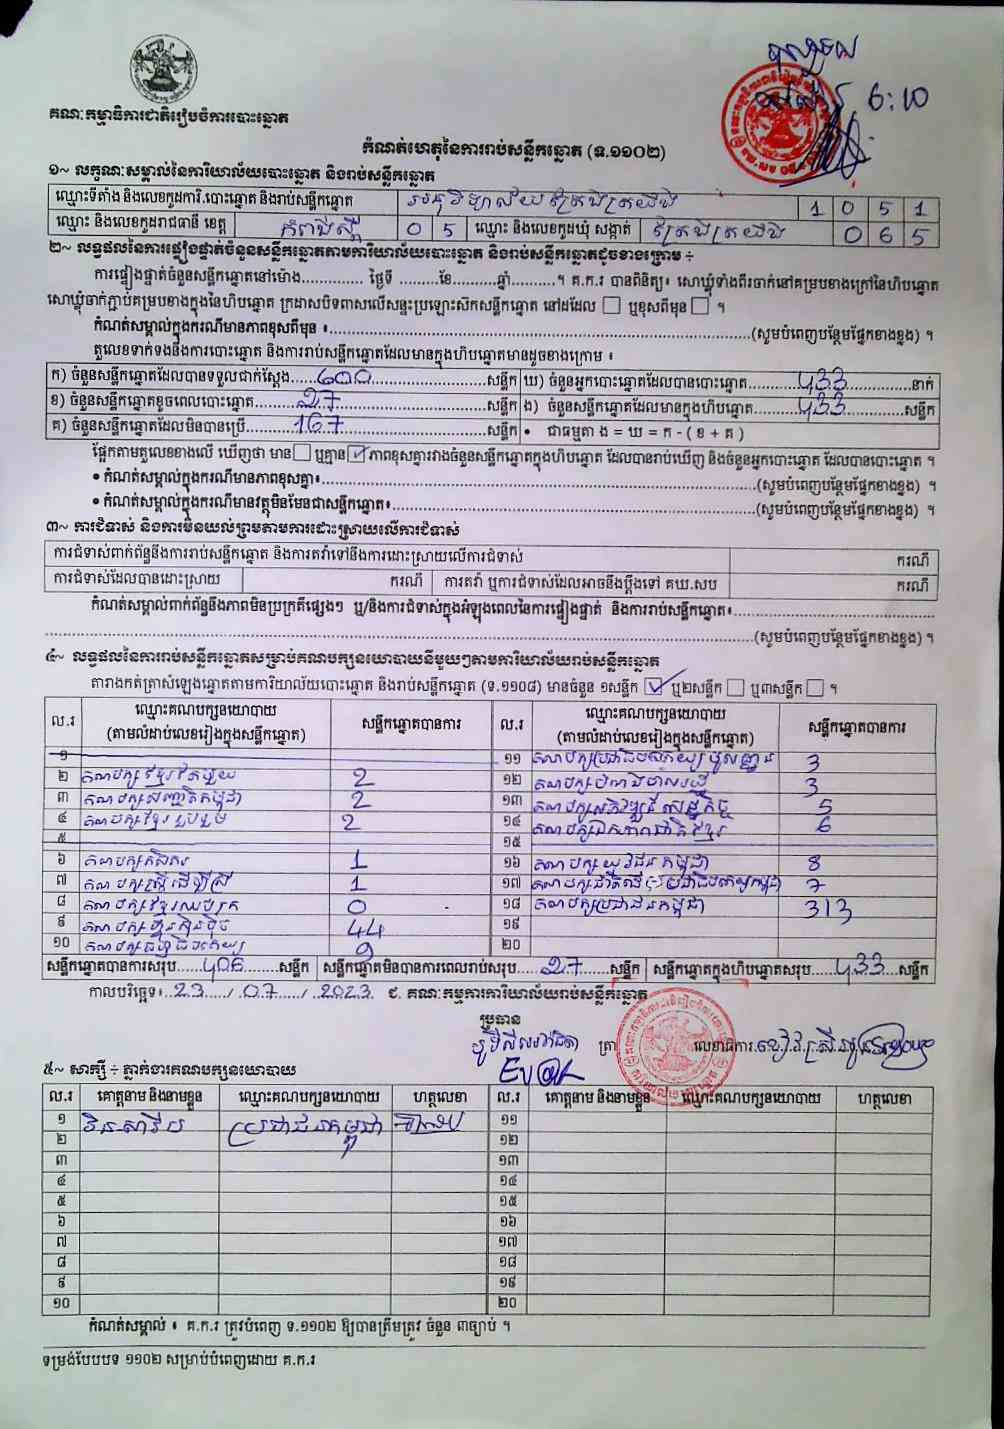 6:10
គណៈកម្មាធិការជាតិរៀបចំការបោះឆ្នោត
កំណត់ហេតុនៃការរាប់សន្លឹកឆ្នោត (ទ.១១០២)
១~ លក្ខណៈសម្គាល់នៃការិយាល័យបោះឆ្នោត និងរាប់សន្លឹកឆ្នោត
ឈ្មោះទីតាំង និងលេខកូដការិ.បោះឆ្នោត និងរាប់សន្លឹកឆ្នោត 1 0 5 1
ឈ្មោះ និងលេខកូដរាជធានី ខេត្ត កំពង់ស្ពឺ 0 5 ឈ្មោះ និងលេខកូដឃុំ សង្កាត់ ត្រែងត្រយឹង 0 6 5
២~ លទ្ធផលនៃការផ្ទៀងផ្ទាត់ចំនួនសន្លឹកឆ្នោតតាមការិយាល័យបោះឆ្នោត និងរាប់សន្លឹកឆ្នោតដូចខាងក្រោម ÷
ការផ្ទៀងផ្ទាត់ចំនួនសន្លឹកឆ្នោតនៅម៉ោង.............. ថ្ងៃទី .........ខែ..........ឆ្នាំ..........។ គ.ក.រ បានពិនិត្យ៖ សោឃ្លុំទាំងពីរចាក់នៅគម្របខាងក្រៅនៃហិបឆ្នោត
សោឃ្លុំចាក់ភ្ជាប់គម្របខាងក្នុងនៃហិបឆ្នោត ក្រដាសបិទពាសលើសន្ទះប្រឡោះសិកសន្លឹកឆ្នោត នៅដដែល ☐ ឬខុសពីមុន ☐ ។
កំណត់សម្គាល់ក្នុងករណីមានភាពខុសពីមុន ៖..........(សូមបំពេញបន្ថែមផ្នែកខាងខ្នង) ។
តួលេខទាក់ទងនឹងការបោះឆ្នោត និងការរាប់សន្លឹកឆ្នោតដែលមានក្នុងហិបឆ្នោតមានដូចខាងក្រោម ៖
ក) ចំនួនសន្លឹកឆ្នោតដែលបានទទួលជាក់ស្តែង.....600..........សន្លឹក ឃ) ចំនួនអ្នកបោះឆ្នោតដែលបានបោះឆ្នោត..........433..........នាក់
ខ) ចំនួនសន្លឹកឆ្នោតខូចពេលបោះឆ្នោត..........27..........សន្លឹក ង) ចំនួនសន្លឹកឆ្នោតដែលមានក្នុងហិបឆ្នោត..........433..........សន្លឹក
គ) ចំនួនសន្លឹកឆ្នោតដែលមិនបានប្រើ..........167..........សន្លឹក • ជាធម្មតា ង = ឃ = ក - ( ខ + គ )
ផ្អែកតាមតួលេខខាងលើ ឃើញថា មាន ☐ ឬគ្មាន ☑ ភាពខុសគ្នារវាងចំនួនសន្លឹកឆ្នោតក្នុងហិបឆ្នោត ដែលបានរាប់ឃើញ និងចំនួនអ្នកបោះឆ្នោត ដែលបានបោះឆ្នោត ។
• កំណត់សម្គាល់ក្នុងករណីមានភាពខុសគ្នា៖..........(សូមបំពេញបន្ថែមផ្នែកខាងខ្នង) ។
• កំណត់សម្គាល់ក្នុងករណីមានវត្ថុមិនមែនជាសន្លឹកឆ្នោត៖..........(សូមបំពេញបន្ថែមផ្នែកខាងខ្នង) ។
៣~ ការជំទាស់ និងការមិនយល់ព្រមតាមការដោះស្រាយលើការជំទាស់
ការជំទាស់ពាក់ព័ន្ធនឹងការរាប់សន្លឹកឆ្នោត និងការតវ៉ាទៅនឹងការដោះស្រាយលើការជំទាស់ ករណី
ការជំទាស់ដែលបានដោះស្រាយ ករណី ការតវ៉ា ឬការជំទាស់ដែលអាចនឹងប្តឹងទៅ គឃ.សប ករណី
កំណត់សម្គាល់ពាក់ព័ន្ធនឹងភាពមិនប្រក្រតីផ្សេងៗ ឬ/និងការជំទាស់ក្នុងអំឡុងពេលនៃការផ្ទៀងផ្ទាត់ និងការរាប់សន្លឹកឆ្នោត៖..........
..........(សូមបំពេញបន្ថែមផ្នែកខាងខ្នង) ។
៤~ លទ្ធផលនៃការរាប់សន្លឹកឆ្នោតសម្រាប់គណបក្សនយោបាយនីមួយៗតាមការិយាល័យរាប់សន្លឹកឆ្នោត
តារាងកត់ត្រាសំឡេងឆ្នោតតាមការិយាល័យបោះឆ្នោត និងរាប់សន្លឹកឆ្នោត (ទ.១១០៨) មានចំនួន ១សន្លឹក ☑ ឬ២សន្លឹក ☐ ឬ៣សន្លឹក ☐ ។
ល.រ ឈ្មោះគណបក្សនយោបាយ (តាមលំដាប់លេខរៀងក្នុងសន្លឹកឆ្នោត) សន្លឹកឆ្នោតបានការ ល.រ ឈ្មោះគណបក្សនយោបាយ (តាមលំដាប់លេខរៀងក្នុងសន្លឹកឆ្នោត) សន្លឹកឆ្នោតបានការ
១ ១១ 3
២ គណបក្សខ្មែរតែមួយ 2 ១២ 3
៣ គណបក្សសញ្ជាតិកម្ពុជា 2 ១៣ 5
៤ គណបក្សខ្មែររួបរួម 2 ១៤ 6
៥ ១៥
៦ គណបក្សកសិករ 1 ១៦ គណបក្សយុវជនកម្ពុជា 8
៧ គណបក្សស្ត្រីដើម្បីស្ត្រី 1 ១៧ 7
៨ គណបក្សខ្មែរឈប់ក្រ 0 ១៨ គណបក្សប្រជាជនកម្ពុជា 313
៩ គណបក្សហ្វ៊ុនស៊ិនប៉ិច 44 ១៩
១០ គណបក្សធម្មាធិបតេយ្យ 9 ២០
សន្លឹកឆ្នោតបានការសរុប.....406.......សន្លឹក សន្លឹកឆ្នោតមិនបានការពេលរាប់សរុប.....27.......សន្លឹក សន្លឹកឆ្នោតក្នុងហិបឆ្នោតសរុប.....433....សន្លឹក
កាលបរិច្ឆេទ៖..23...../..07...../..2023. ជ. គណៈកម្មការការិយាល័យរាប់សន្លឹកឆ្នោត
ប្រធាន
ត្រា លេខាធិការ
៥~ សាក្សី ÷ ភ្នាក់ងារគណបក្សនយោបាយ
ល.រ គោត្តនាម និងនាមខ្លួន ឈ្មោះគណបក្សនយោបាយ ហត្ថលេខា ល.រ គោត្តនាម និងនាមខ្លួន ឈ្មោះគណបក្សនយោបាយ ហត្ថលេខា
១ ប្រជាជនកម្ពុជា ១១
២ ១២
៣ ១៣
៤ ១៤
៥ ១៥
៦ ១៦
៧ ១៧
៨ ១៨
៩ ១៩
១០ ២០
កំណត់សម្គាល់ ៖ គ.ក.រ ត្រូវបំពេញ ទ.១១០២ ឱ្យបានត្រឹមត្រូវ ចំនួន ៣ច្បាប់ ។
ទម្រង់បែបបទ ១១០២ សម្រាប់បំពេញដោយ គ.ក.រ